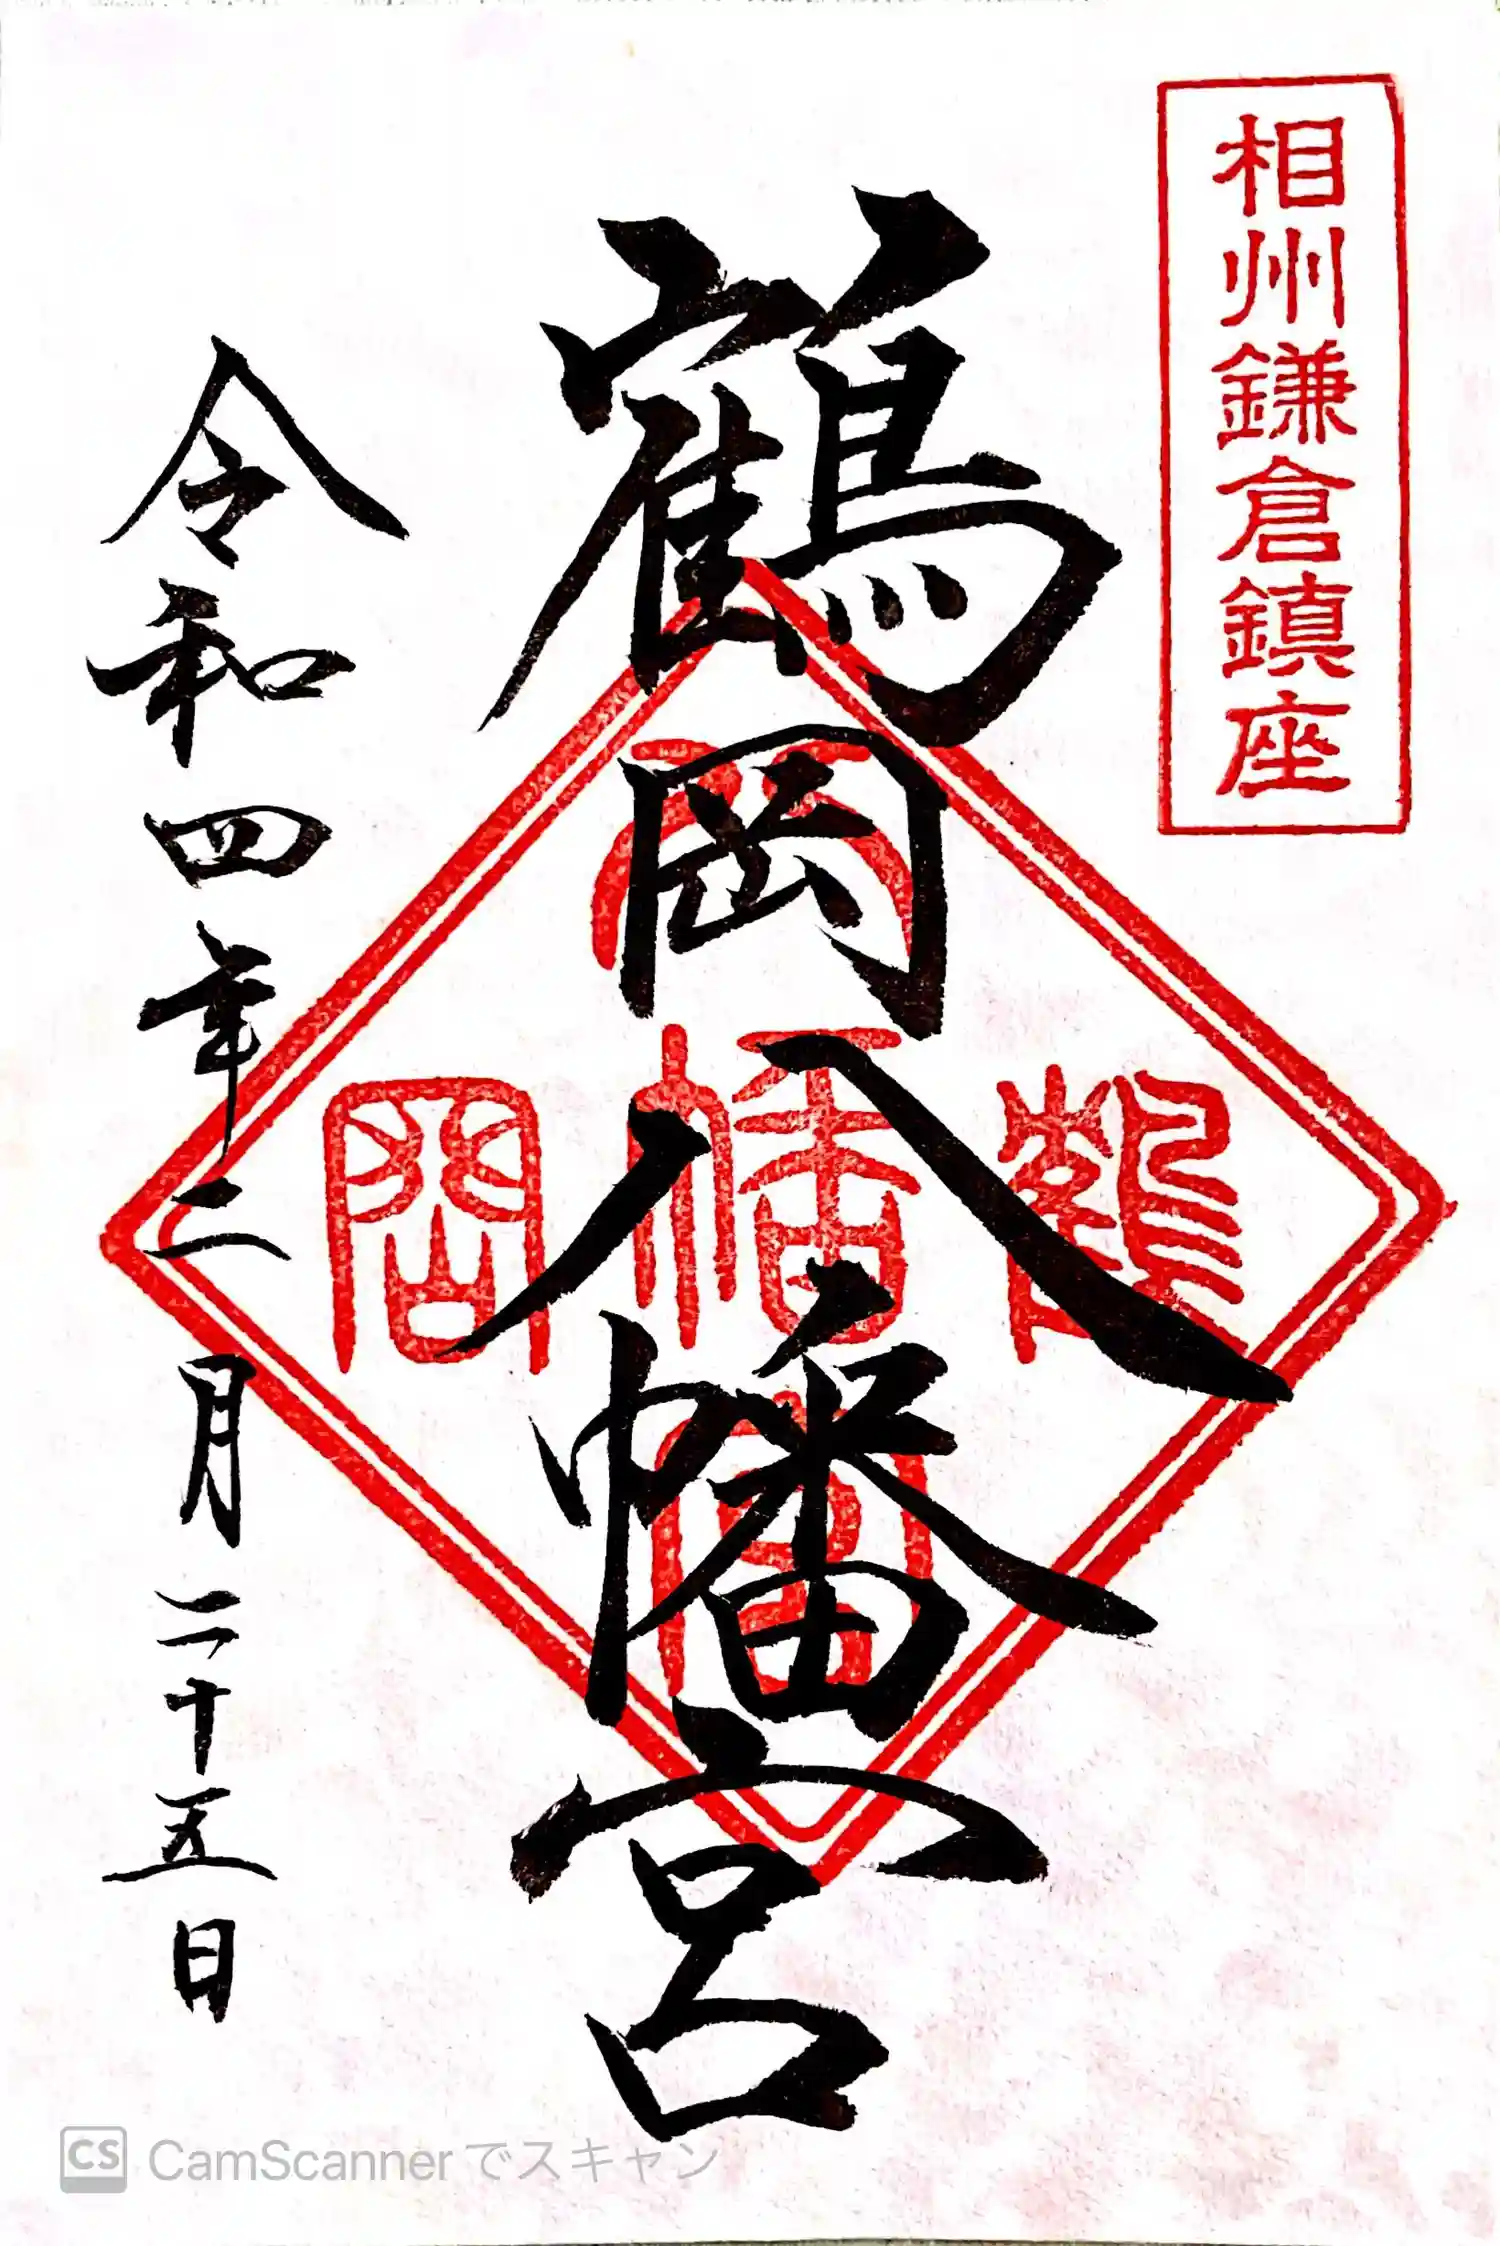 相州鎌倉鎮座
鶴岡八幡宮
鶴岡八幡宮
令和四年二月二十五日
CS CamScannerでスキャン